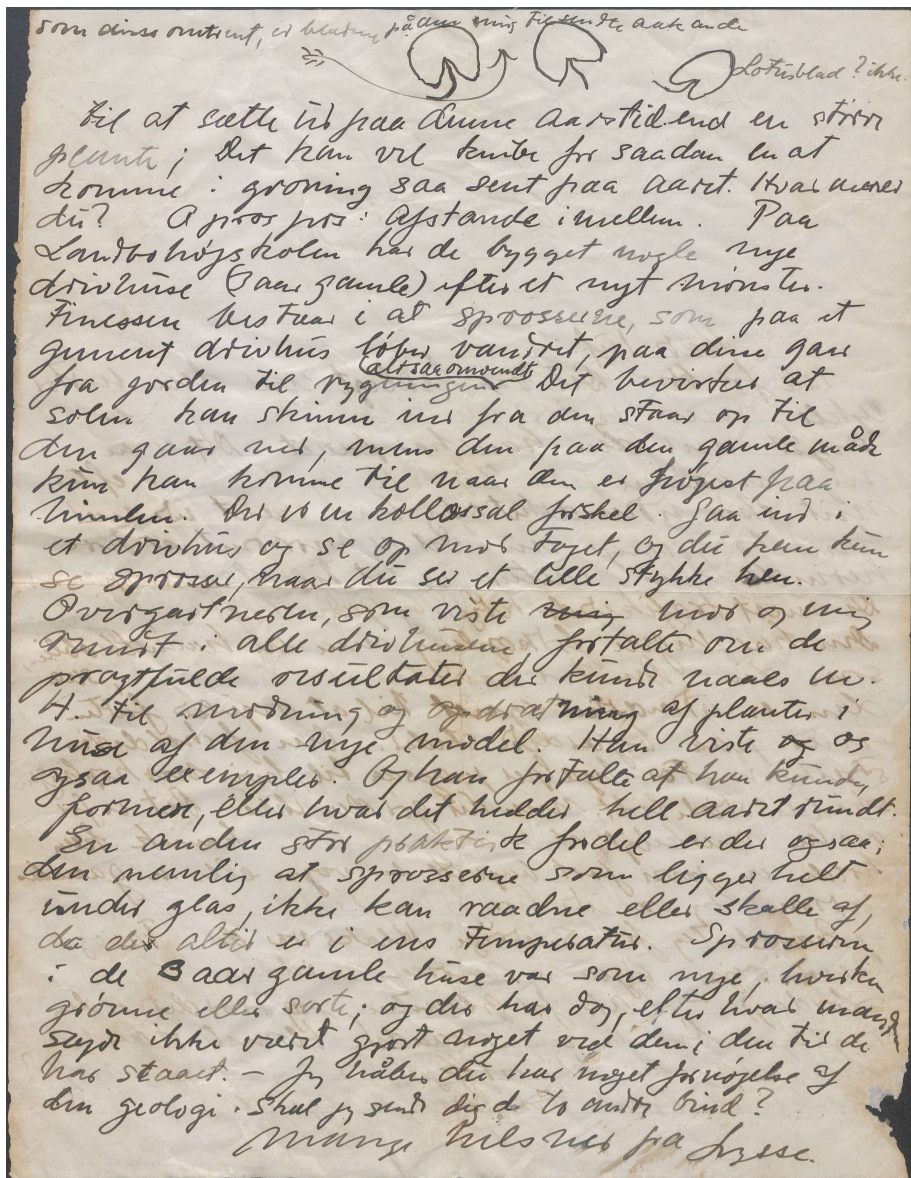 som disse omtrent, er bladene på den mig tilsendte aakande
Lotusblad? ikke.
til at sætte ud paa denne aarstid end en større
plante; Det kan vel knibe for saadan en at
komme i groning saa sent paa aaret. Hvad mener
du? Apropos: afstande imellem. Paa
Landbohøjskolen har de bygget nogle nye
drivhuse (3 aar gamle) efter et nyt mønster.
Finessen bestaar i at sprosserne, som paa et
gement drivhus løber vandret, paa disse gaar
(altsaa omvendt)
fra jorden til rygningen Det bevirker at
solen kan skinne ind fra den staar op til
den gaar ned, mens den paa den gamle måde
kun kan komme til naar den er højest paa
himlen. Der er en kollossal forskel. Gaa ind i
et drivhus og se op mod taget, og du kan kun
se sprosser, naar du ser et lille stykke hen.
Overgartneren, som viste mig mor og mig
rundt i alle drivhusene, fortalte om de
pragtfulde resultater der kunde naaes m.
H. til modning og opdrætning af planter i
huse af den nye model. Han viste og os
ogsaa exempler. Og han fortalte at han kunde,
formere, eller hvad det hedder hele aaret rundt.
En anden stor praktisk fordel er der ogsaa;
den nemlig at sprosserne som ligger helt
under glas, ikke kan raadne eller skalle af,
da der altid er i ens temperatur. Sprosserne
i de 3 aar gamle huse var som nye, hverken
grønne eller sorte; og der har dog, efter hvad manden
sagde ikke været gjort noget ved dem i den tid de
har staaet. – Jeg håber du har noget fornøjelse af
den geologi. Skal jeg sende dig de to andre bind?
Mange hilsner fra